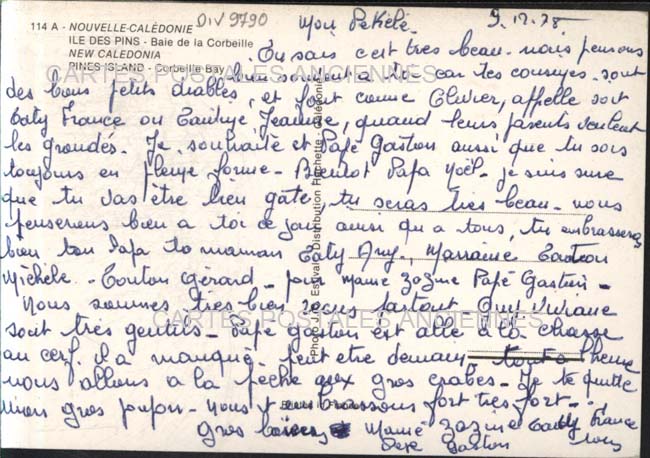 114 A - NOUVELLE-CALÉDONIE
ILE DES PINS - Baie de la Corbeille
NEW CALEDONIA
PINES ISLAND - Corbeille Bay
DIV 9790
Mon 9.12.78
Tu sais c'est tres beau - nous pensons
bien souvent a toi - car tes cousines - sont
des bons petits diables, et font comme Olivier, appelle soit
Taty France ou Jeannine, quand leurs parents veulent
les grondés - Je souhaite et Papé Gaston aussi que tu sois
toujours en pleine forme - Bientot Papa Noël - je suis sure
que tu vas être bien gâte, tu seras tres beau - nous
penserons bien a toi ce jour ainsi qu a tous, tu embrasseras
bien ton Papa ta maman Taty Any, Marraine Tonton
Michèle - Tonton Gérard - pour Mamie Zozine Papé Gaston -
Nous sommes tres bien reçus surtout Viviane
sont très gentils - Papé gaston est allé a la chasse
au cerf, il a manqué - peut etre demain tout a l'heure
nous allons a la pêche aux gros crabes - Je te quitte
mon gros - nous t embrassons fort tres fort -
gros Mamé Zozine Taty France
Papé Gaston
Photo Jile Estival - Distribution Rochette - Calédonie
CARTES POSTALES ANCIENNES
CARTES POSTALES ANCIENNES